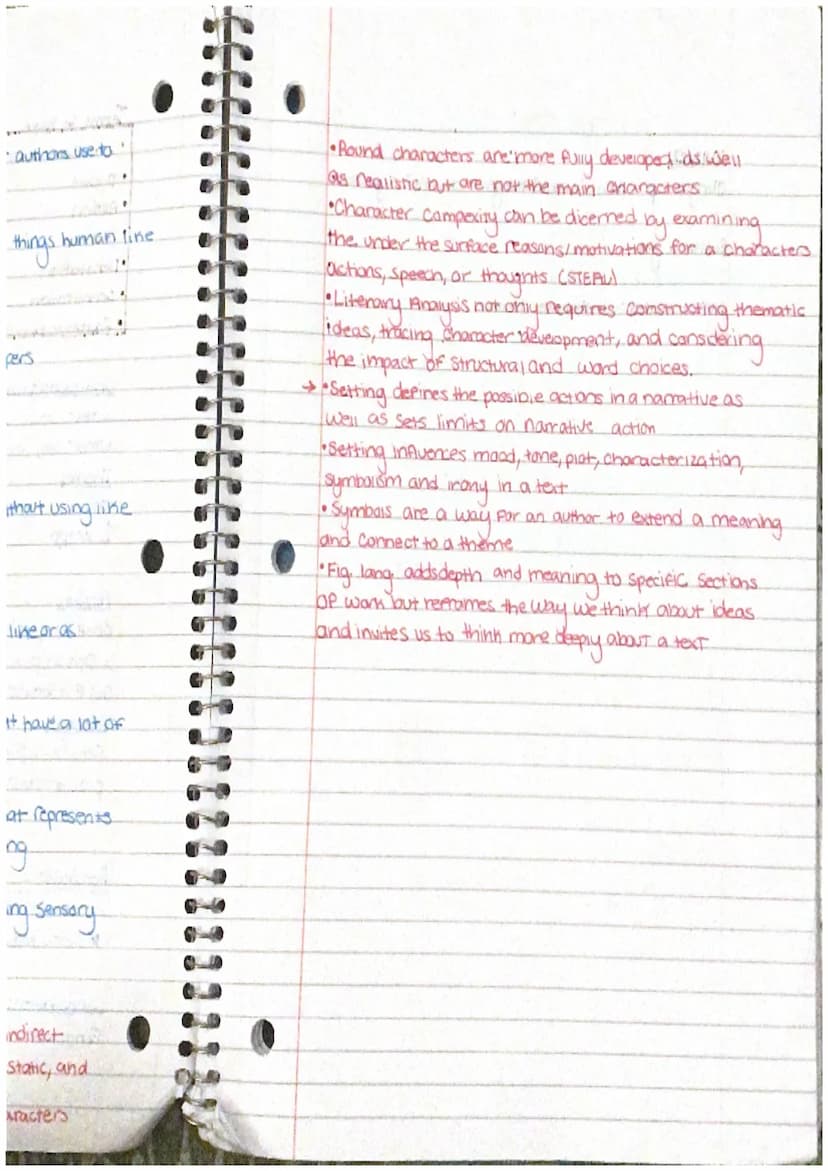 authors use to
things human line
pers
ithout using like
like or as
it have a lot of
at represents
ng
ing sensory
indirect
static, and
aracters
•Round characters are more fully developed as well
as realistic but are not the main characters
•Character compexity can be dicerned by examining
the under the surface reasons/motivations for a characters
actions, speech, or thoughts (STEAL)
•Literary Analysis not only requires constructing thematic
ideas, tracing character development, and considering
the impact of structural and word choices.
→ •Setting defines the possible actions in a narrative as
well as sets limits on narrative action
•Setting influences mood, tone, plot, characterization,
symbolism and irony in a text
•Symbols are a way for an author to extend a meaning
and connect to a theme
•Fig lang adds depth and meaning to specific sections
of work but reframes the way we think about ideas
and invites us to think more deeply about a text